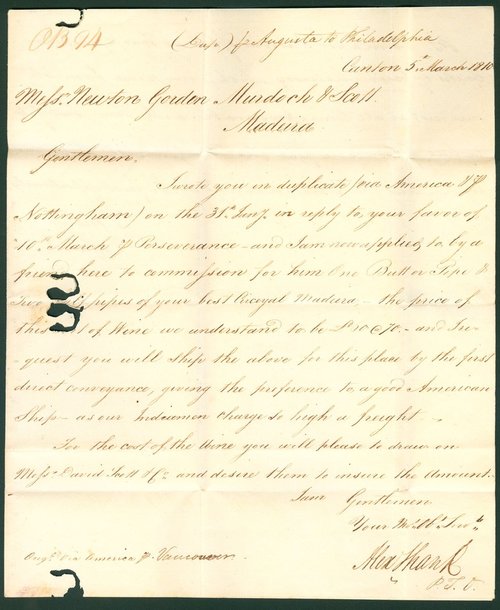 (Dup.) ₱ Augusta to Philadelphia
Canton 5th March 1810
Messrs. Newton Gordon Murdoch & Scott
Madeira
Gentlemen.
I wrote you in duplicate (via America & ₱
Nottingham) on the 31st Jany. in reply to your favor of
10th March ₱ Perseverance - and I am now applied to by a
friend here to commission for him one Butt or Pipe &
Two pipes of your best Madeira, - the price of
this of Wine we understand to be and I re-
quest you will ship the above for this place by the first
direct conveyance, giving the preference to a good American
Ship - as our Indiamen charge so high a freight. -
For the cost of the Wine you will please to draw on
Messrs. David Scott & Co. and desire them to insure the Amount.
I am Gentlemen
Your Mo. Ob. Servt.
Alex Shank
Orig. via America ₱ Vancouver.